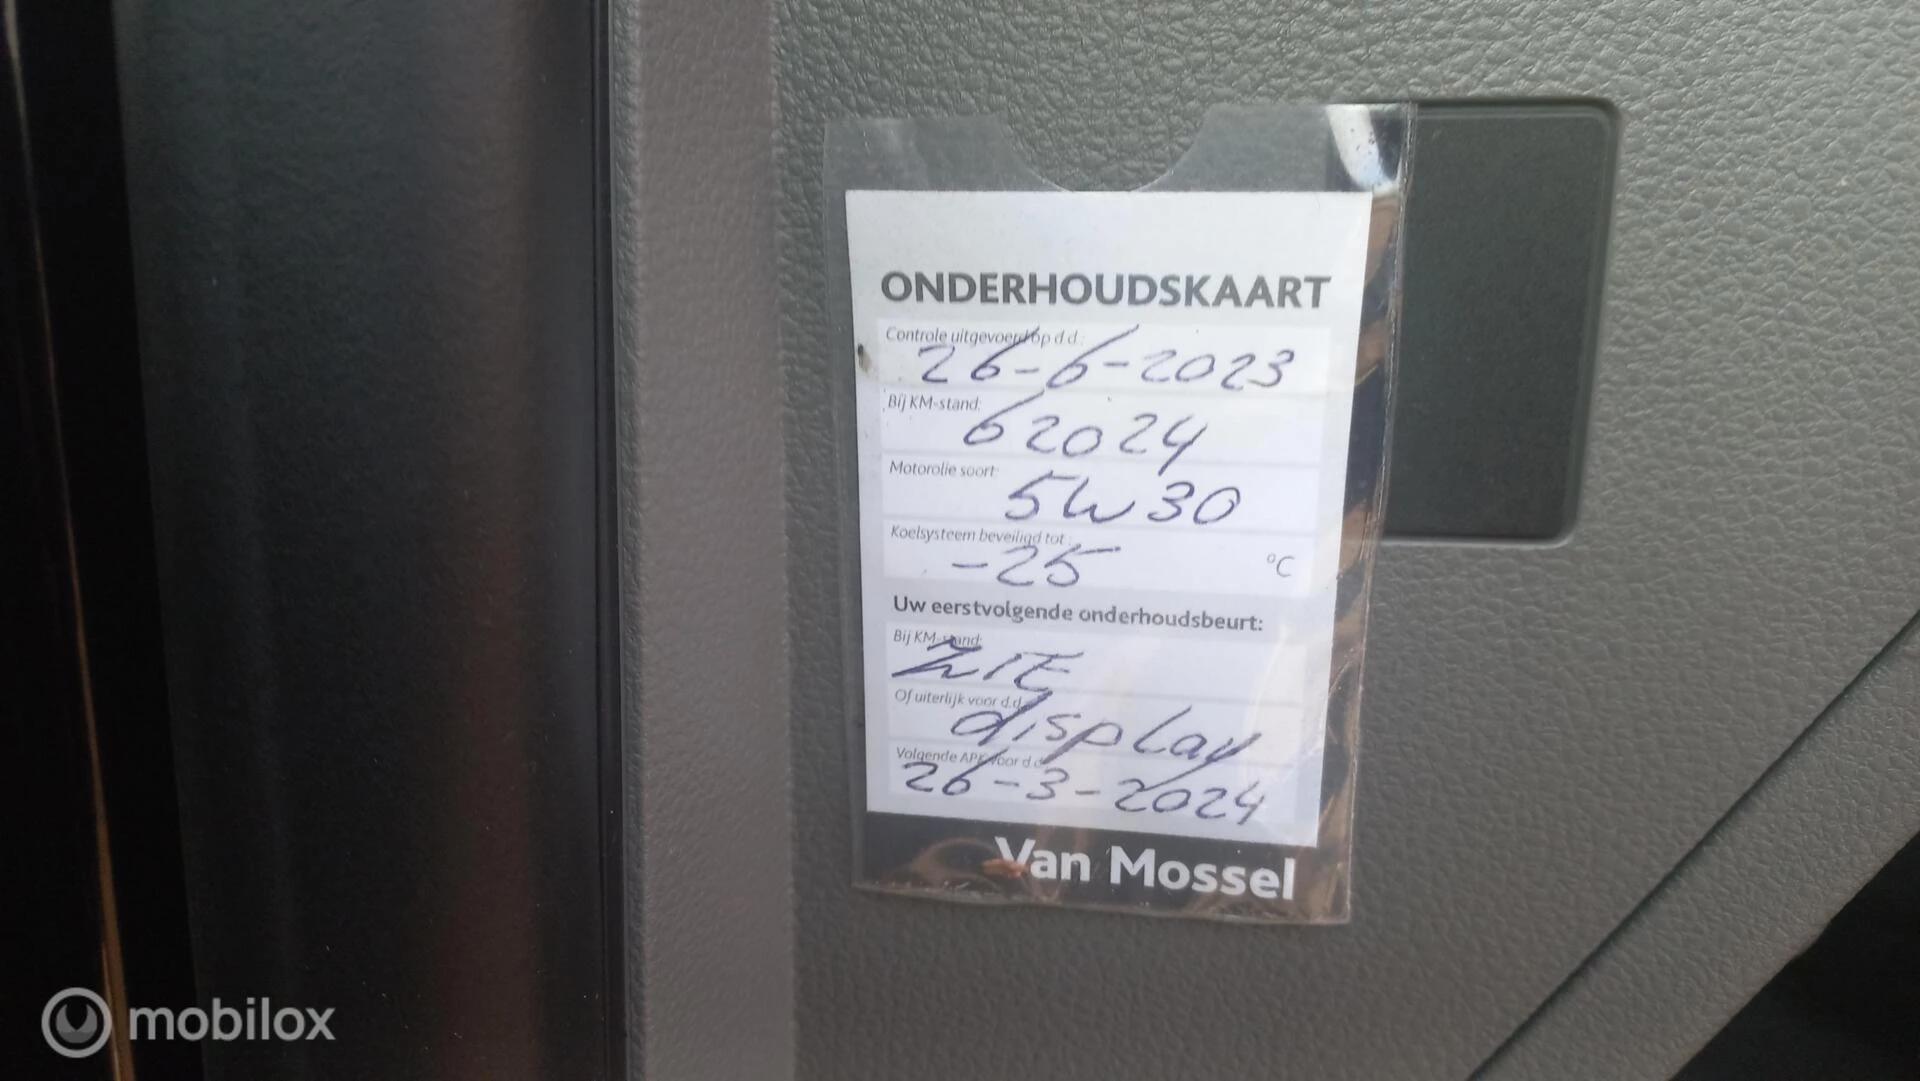 ONDERHOUDSKAART
Controle uitgevoerd op d.d.:
26-6-2023
Bij KM-stand:
62024
Motorolie soort:
5W30
Koelsysteem beveiligd tot:
-25 °C
Uw eerstvolgende onderhoudsbeurt:
Bij KM-stand:
ZIE
Of uiterlijk voor d.d.
display
Volgende APK voor d.d.
26-3-2024
Van Mossel
mobilox